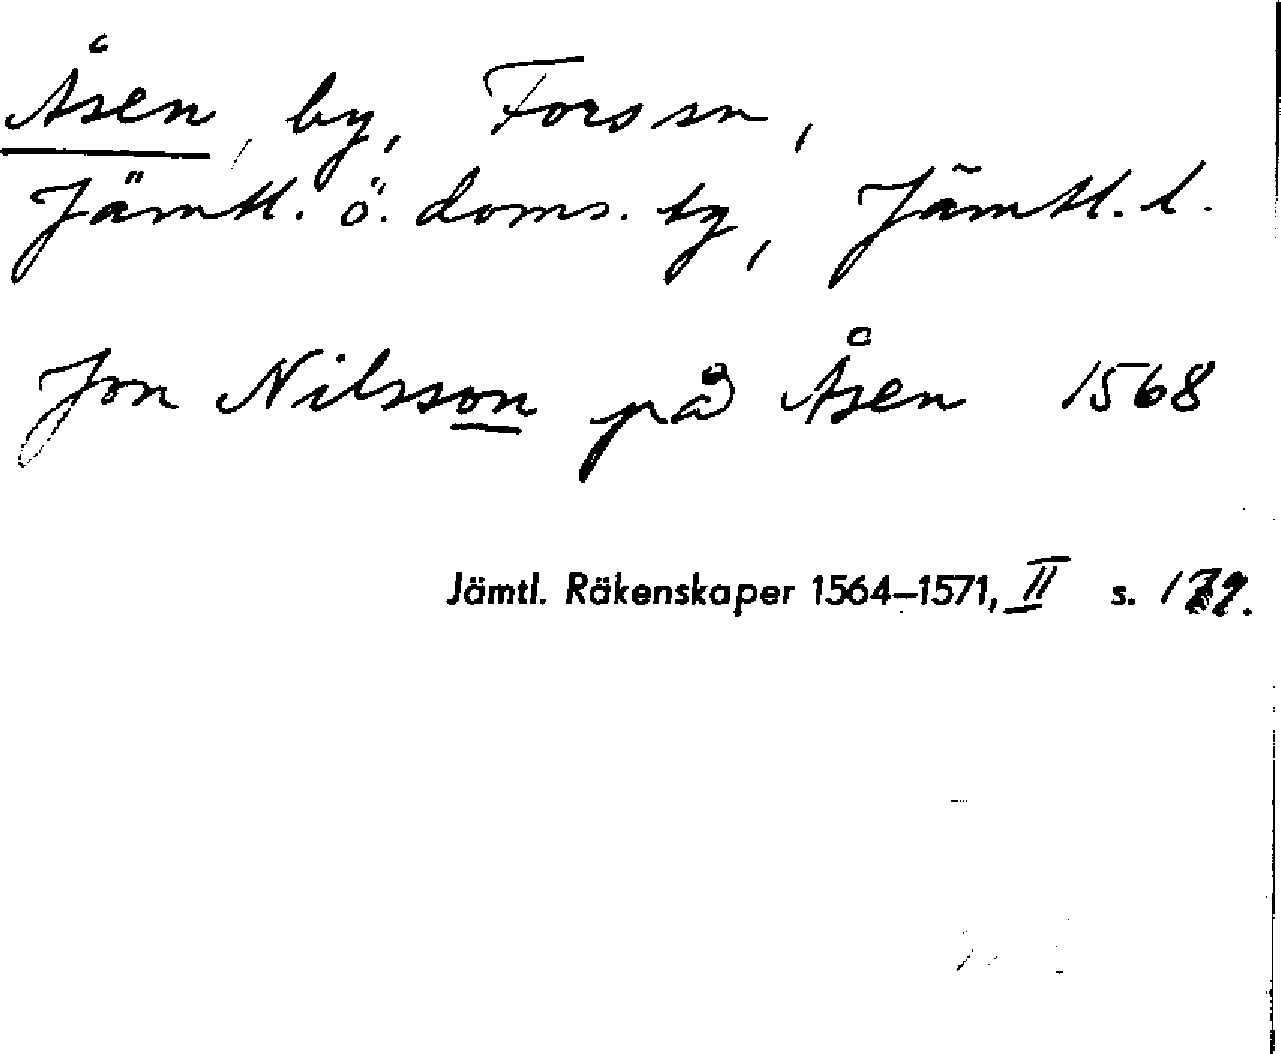 Åsen, by, Fors sn,
Jämtl. ö. doms. tg, Jämtl. l.
Jon Nilsson på Åsen 1568
Jämtl. Räkenskaper 1564–1571, II s. 179.